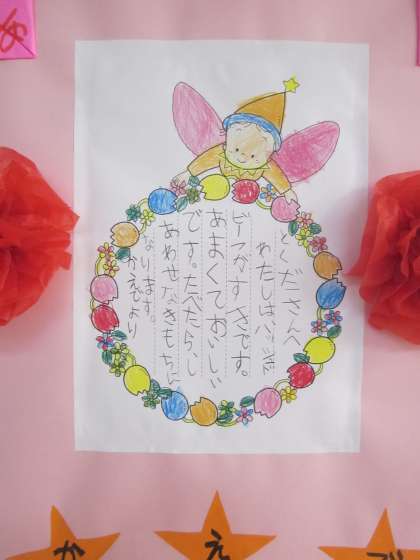 あ
とくださんへ
わたしは
がすきです。
あまくておいしい
です。たべたら、し
あわせなきもちに
なります。
かえでより
か
え
で